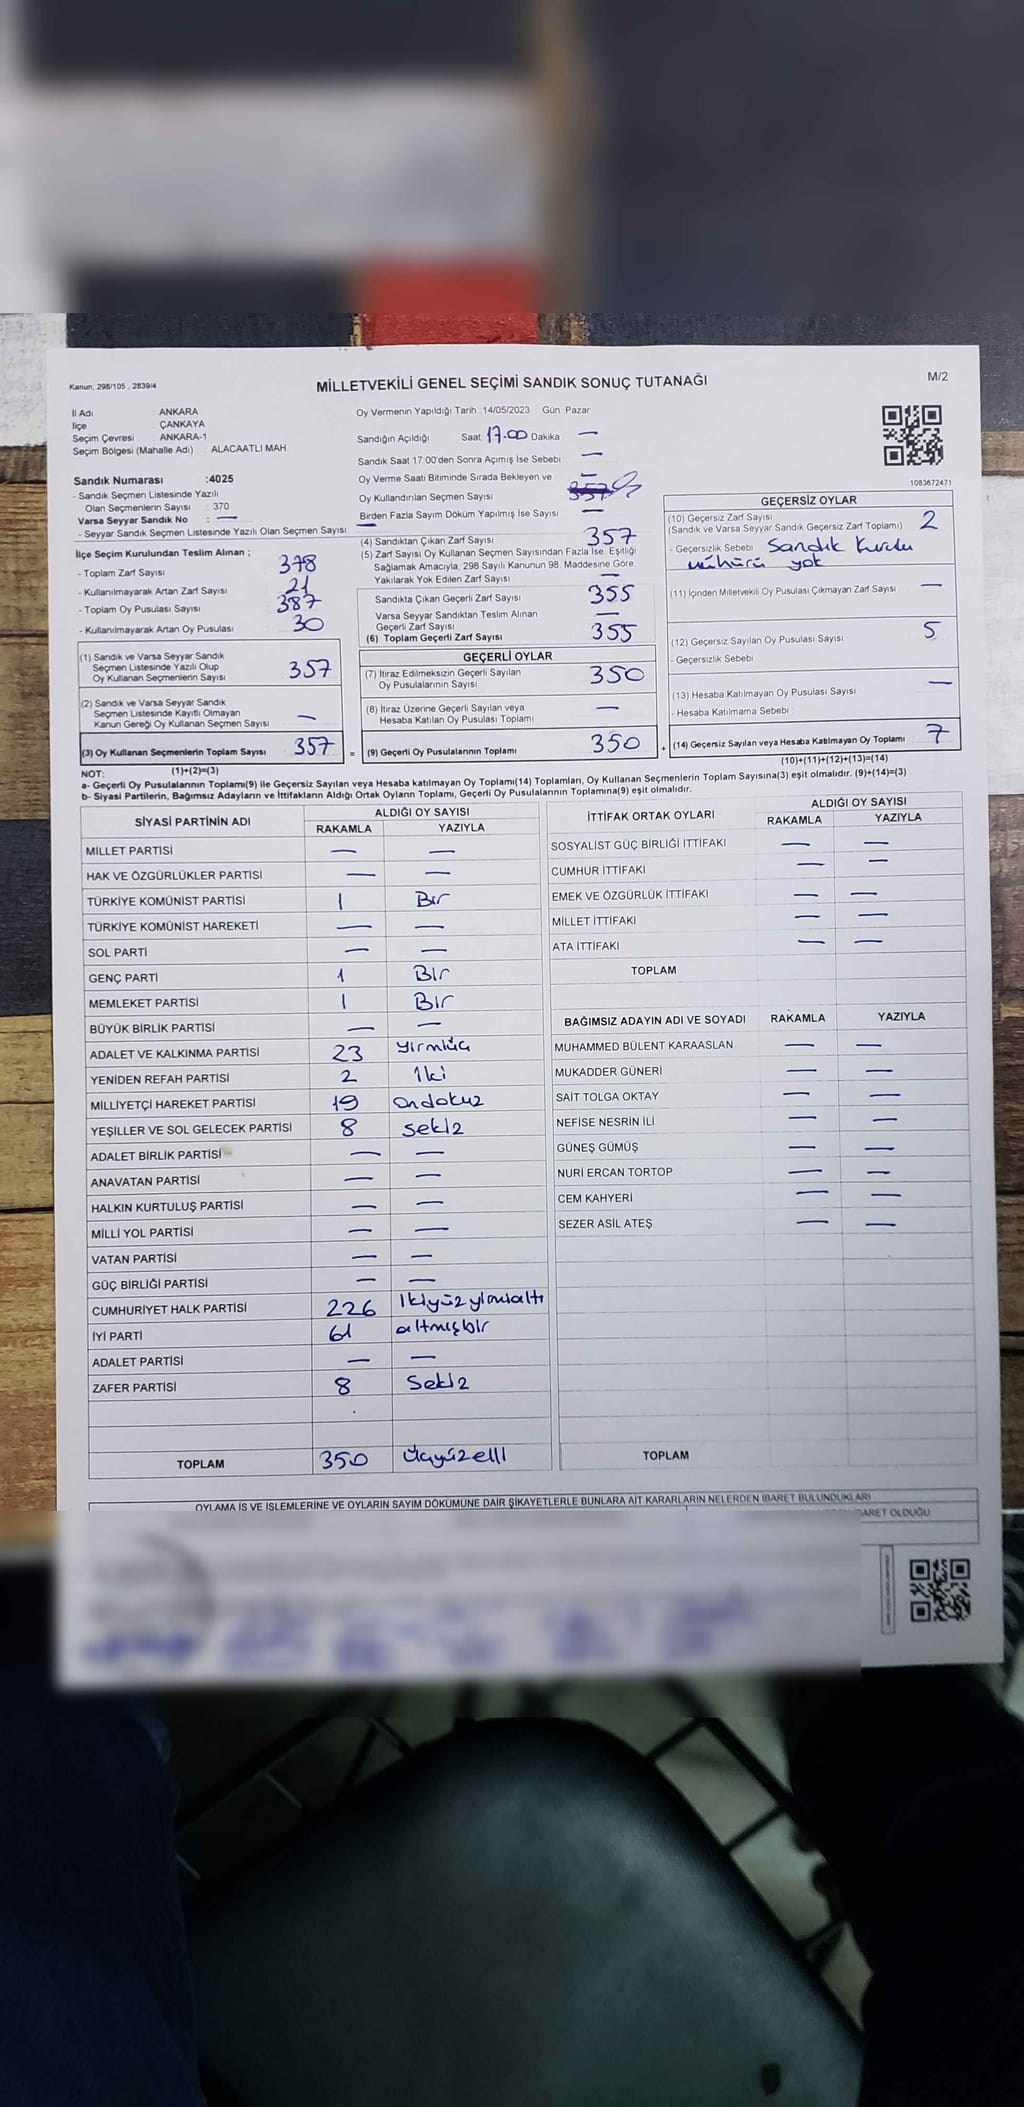 Kanun: 298/105 , 2839/4
MİLLETVEKİLİ GENEL SEÇİMİ SANDIK SONUÇ TUTANAĞI
M/2
İl Adı : ANKARA
İlçe : ÇANKAYA
Seçim Çevresi : ANKARA-1
Seçim Bölgesi (Mahalle Adı) : ALACAATLI MAH
Oy Vermenin Yapıldığı Tarih :14/05/2023 Gün Pazar
Sandığın Açıldığı Saat 17.00 Dakika —
Sandık Saat 17:00'den Sonra Açımış İse Sebebi —
Oy Verme Saati Bitiminde Sırada Bekleyen ve —
Oy Kullandırılan Seçmen Sayısı 357
Birden Fazla Sayım Döküm Yapılmış İse Sayısı —
1083672471
Sandık Numarası :4025
- Sandık Seçmen Listesinde Yazılı
Olan Seçmenlerin Sayısı : 370
Varsa Seyyar Sandık No : —
- Seyyar Sandık Seçmen Listesinde Yazılı Olan Seçmen Sayısı
İlçe Seçim Kurulundan Teslim Alınan ;
- Toplam Zarf Sayısı 378
- Kullanılmayarak Artan Zarf Sayısı 21
- Toplam Oy Pusulası Sayısı 387
- Kullanılmayarak Artan Oy Pusulası 30
(1) Sandık ve Varsa Seyyar Sandık
Seçmen Listesinde Yazılı Olup
Oy Kullanan Seçmenlerin Sayısı 357
(2) Sandık ve Varsa Seyyar Sandık
Seçmen Listesinde Kayıtlı Olmayan
Kanun Gereği Oy Kullanan Seçmen Sayısı —
(3) Oy Kullanan Seçmenlerin Toplam Sayısı 357 =
(1)+(2)=(3)
(4) Sandıktan Çıkan Zarf Sayısı 357
(5) Zarf Sayısı Oy Kullanan Seçmen Sayısından Fazla İse, Eşitliği
Sağlamak Amacıyla; 298 Sayılı Kanunun 98. Maddesine Göre
Yakılarak Yok Edilen Zarf Sayısı —
Sandıkta Çıkan Geçerli Zarf Sayısı 355
Varsa Seyyar Sandıktan Teslim Alınan
Geçerli Zarf Sayısı —
(6) Toplam Geçerli Zarf Sayısı 355
GEÇERLİ OYLAR
(7) İtiraz Edilmeksizin Geçerli Sayılan
Oy Pusulalarının Sayısı 350
(8) İtiraz Üzerine Geçerli Sayılan veya
Hesaba Katılan Oy Pusulası Toplamı —
(9) Geçerli Oy Pusulalarının Toplamı 350 +
GEÇERSİZ OYLAR
(10) Geçersiz Zarf Sayısı 2
(Sandık ve Varsa Seyyar Sandık Geçersiz Zarf Toplamı)
- Geçersizlik Sebebi Sandık Kurulu
mühürü yok
(11) İçinden Milletvekili Oy Pusulası Çıkmayan Zarf Sayısı —
(12) Geçersiz Sayılan Oy Pusulası Sayısı 5
- Geçersizlik Sebebi
(13) Hesaba Katılmayan Oy Pusulası Sayısı —
- Hesaba Katılmama Sebebi
(14) Geçersiz Sayılan veya Hesaba Katılmayan Oy Toplamı 7
(10)+(11)+(12)+(13)=(14)
NOT:
a- Geçerli Oy Pusulalarının Toplamı(9) ile Geçersiz Sayılan veya Hesaba katılmayan Oy Toplamı(14) Toplamları, Oy Kullanan Seçmenlerin Toplam Sayısına(3) eşit olmalıdır. (9)+(14)=(3)
b- Siyasi Partilerin, Bağımsız Adayların ve İttifakların Aldığı Ortak Oyların Toplamı, Geçerli Oy Pusulalarının Toplamına(9) eşit olmalıdır.
SİYASİ PARTİNİN ADI ALDIĞI OY SAYISI
RAKAMLA YAZIYLA
MİLLET PARTİSİ — —
HAK VE ÖZGÜRLÜKLER PARTİSİ — —
TÜRKİYE KOMÜNİST PARTİSİ 1 Bir
TÜRKİYE KOMÜNİST HAREKETİ — —
SOL PARTİ — —
GENÇ PARTİ 1 Bir
MEMLEKET PARTİSİ 1 Bir
BÜYÜK BİRLİK PARTİSİ — —
ADALET VE KALKINMA PARTİSİ 23 yirmiüç
YENİDEN REFAH PARTİSİ 2 İki
MİLLİYETÇİ HAREKET PARTİSİ 19 ondokuz
YEŞİLLER VE SOL GELECEK PARTİSİ 8 sekiz
ADALET BİRLİK PARTİSİ — —
ANAVATAN PARTİSİ — —
HALKIN KURTULUŞ PARTİSİ — —
MİLLİ YOL PARTİSİ — —
VATAN PARTİSİ — —
GÜÇ BİRLİĞİ PARTİSİ — —
CUMHURİYET HALK PARTİSİ 226 ikiyüzyirmialtı
İYİ PARTİ 61 altmışbir
ADALET PARTİSİ — —
ZAFER PARTİSİ 8 Sekiz
TOPLAM 350 Üçyüzelli
İTTİFAK ORTAK OYLARI ALDIĞI OY SAYISI
RAKAMLA YAZIYLA
SOSYALİST GÜÇ BİRLİĞİ İTTİFAKI — —
CUMHUR İTTİFAKI — —
EMEK VE ÖZGÜRLÜK İTTİFAKI — —
MİLLET İTTİFAKI — —
ATA İTTİFAKI — —
TOPLAM
BAĞIMSIZ ADAYIN ADI VE SOYADI RAKAMLA YAZIYLA
MUHAMMED BÜLENT KARAASLAN — —
MUKADDER GÜNERİ — —
SAİT TOLGA OKTAY — —
NEFİSE NESRİN İLİ — —
GÜNEŞ GÜMÜŞ — —
NURİ ERCAN TORTOP — —
CEM KAHYERİ — —
SEZER ASİL ATEŞ — —
TOPLAM
OYLAMA İŞ VE İŞLEMLERİNE VE OYLARIN SAYIM DÖKÜMÜNE DAİR ŞİKAYETLERLE BUNLARA AİT KARARLARIN NELERDEN İBARET BULUNDUKLARI
İBARET OLDUĞU